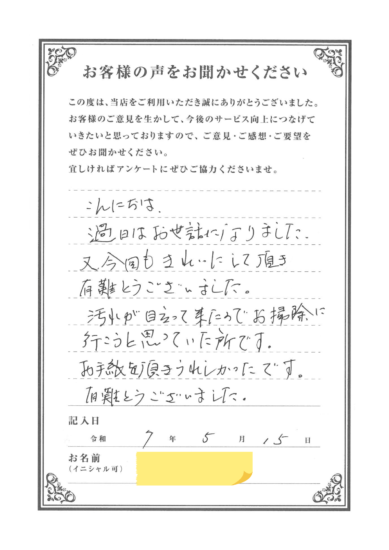 お客様の声をお聞かせください
この度は、当店をご利用いただき誠にありがとうございました。
お客様のご意見を生かして、今後のサービス向上につなげて
いきたいと思っておりますので、ご意見・ご感想・ご要望を
ぜひお聞かせください。
宜しければアンケートにぜひご協力くださいませ。
こんにちは、
過日はお世話になりました。
又今回もきれいにして頂き
有難とうございました。
汚れが目立って来たのでお掃除に
行こうと思っていた所です。
お手紙を頂きうれしかったです。
有難とうございました。
記入日
令和 7 年 5 月 15 日
お名前
(イニシャル可)